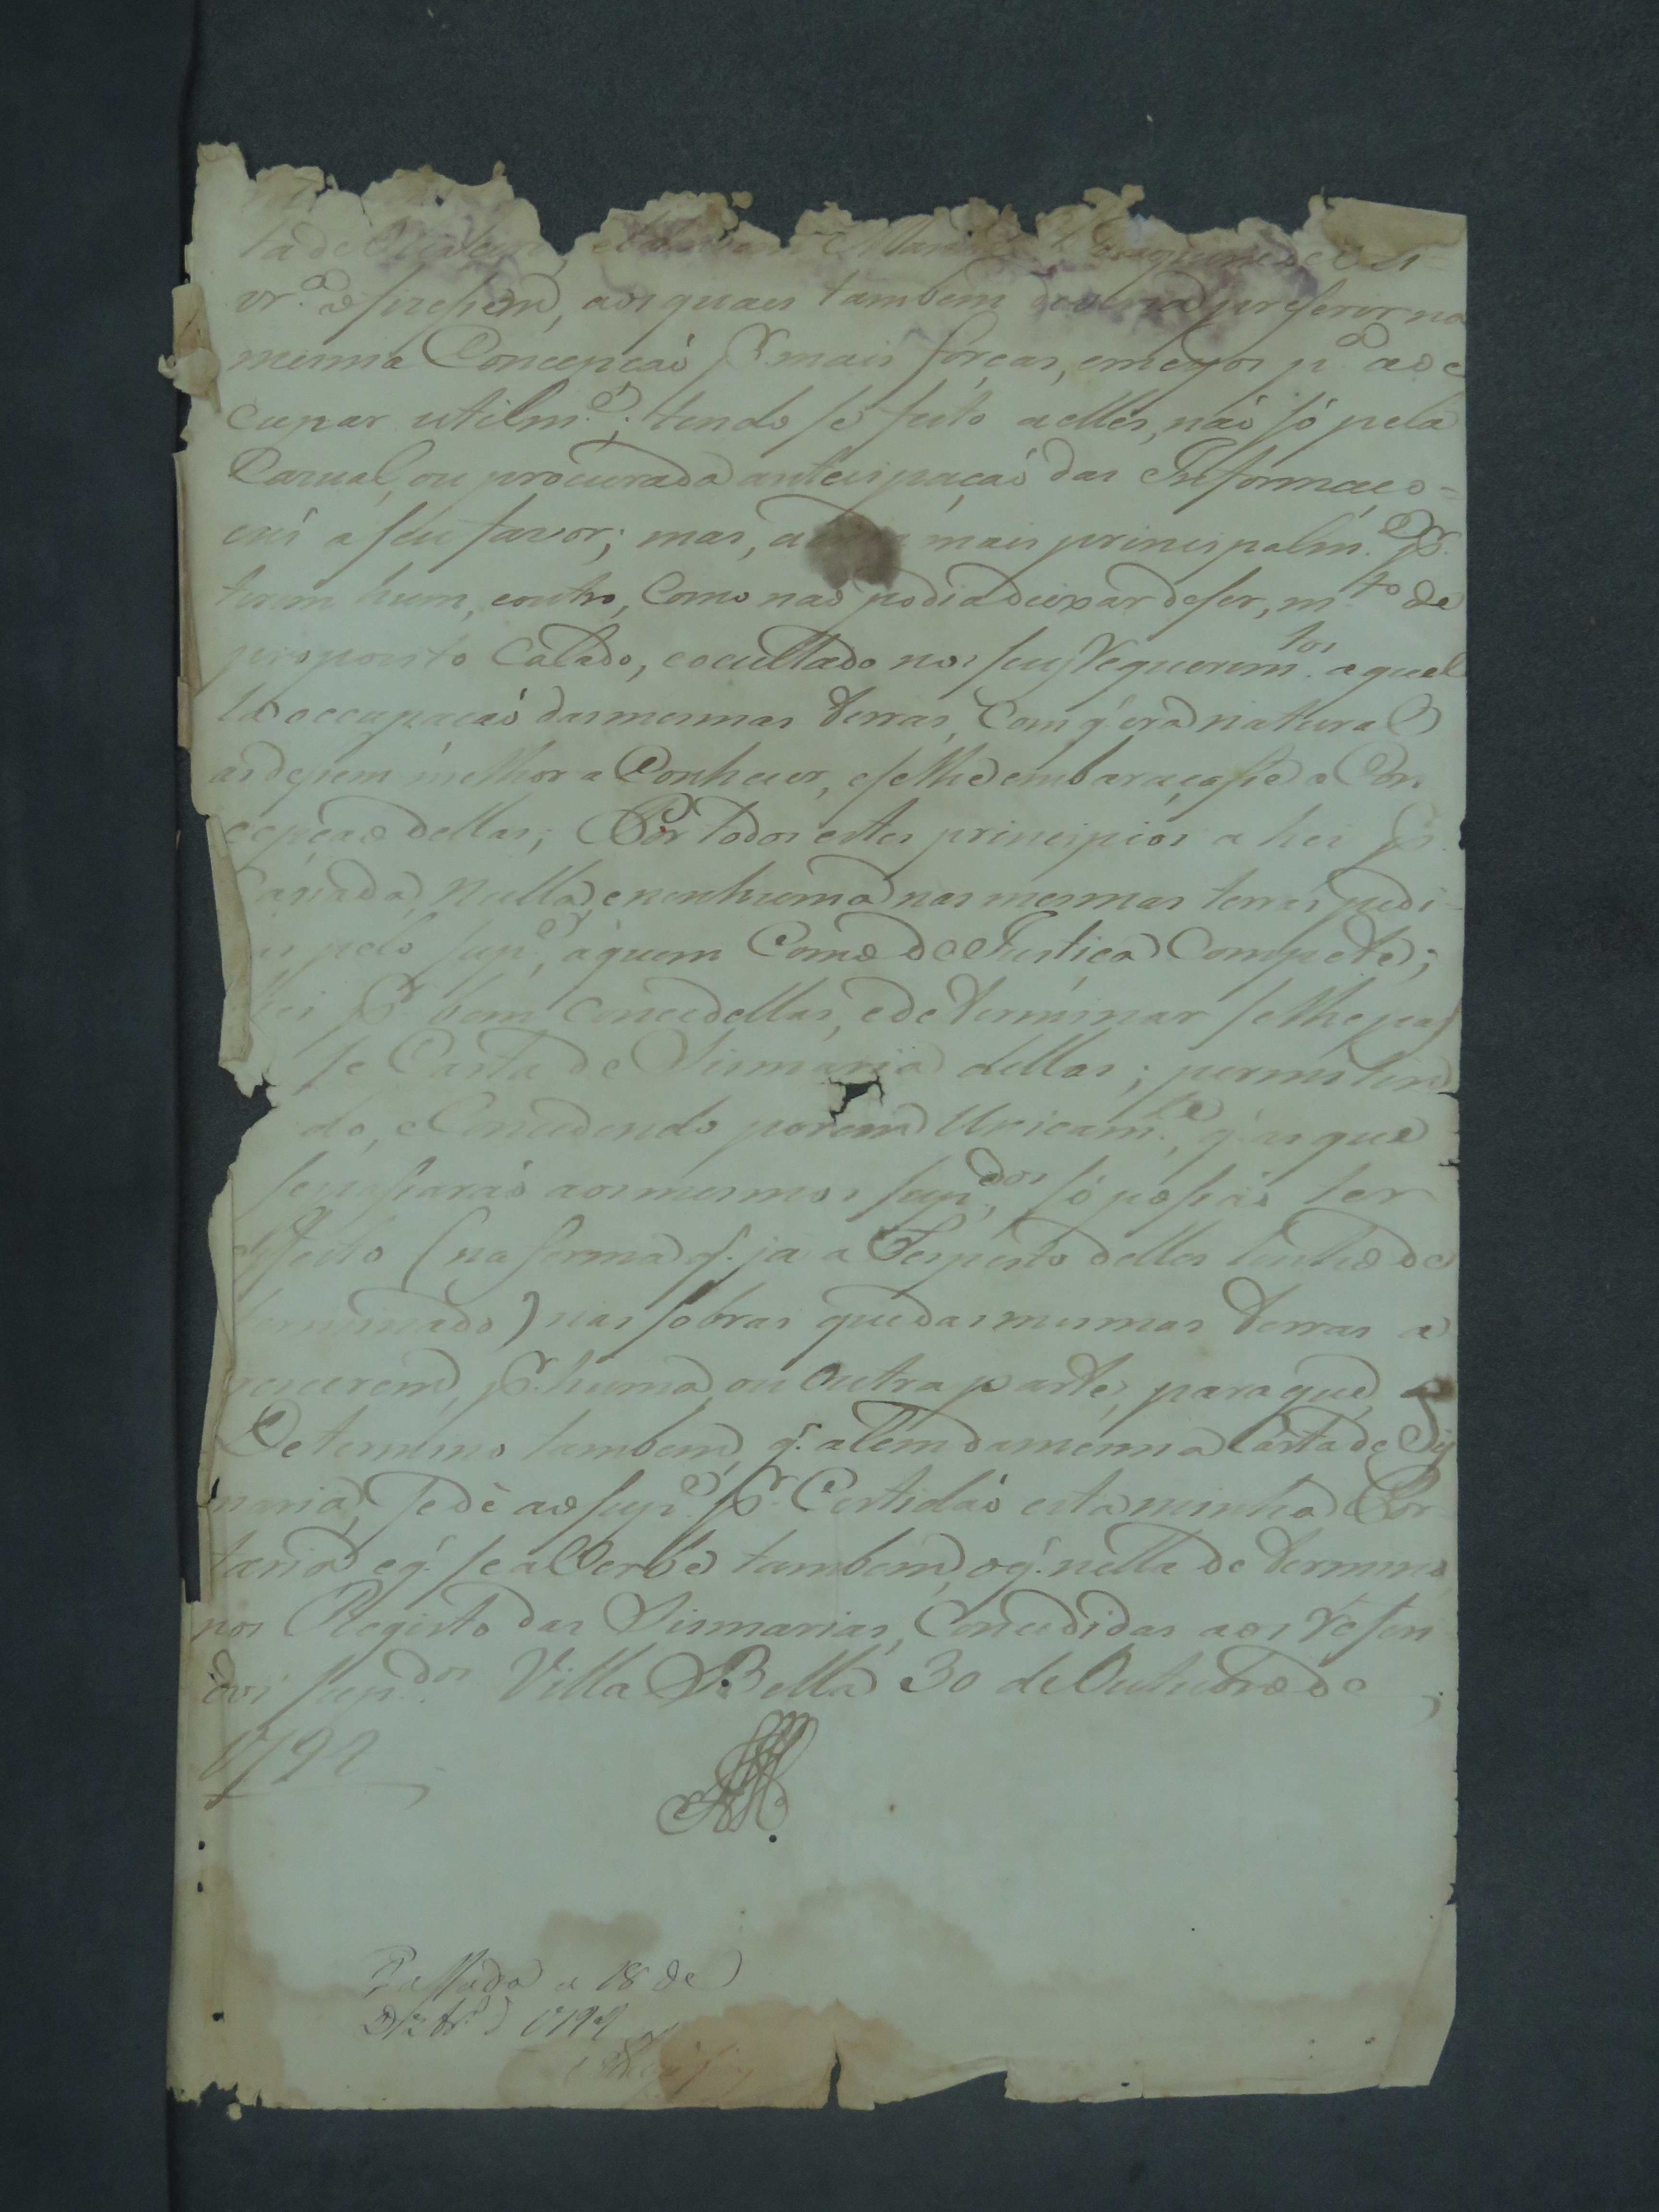 vr.ª o fizessem, aos quaes tambem deveria preferir na
mesma Concepçaõ p.r mais forças, e meyos p.ª as oc
cupar utilm.e; tendo se feito a elles, naõ só pela
Cazual, ou procurada anteçipaçaõ das Informaço=
ens a seu favor; mas, mais principalm.e p.r
terem hum, e outro, Como naõ podia deixar de ser, m.to de
proposito Calado, e ocultado nos seus Requerim.tos aquel
la occupaçaõ das mesmas terras, Com q' era natural
as depem milhor a Conhecer, e se lhe embaraçasse a Con
cepçaõ dellas; Por todos estes principios a hei p.r
Cassada, Nulla, e nenhuma nas mesmas terras pedi
as pelo sup.e, á quem Como de Justiça Compete;
Hei p.r bem Concedellas, e determinar se lhe pas
se Carta de Sismaria dellas; permitin
do, e Concedendo porém Unicam.e, q' as que
se passaraõ aos mesmos sup.dos, só possaõ ter
effeito (na forma q' ja a Respeito delles tinha de
terminado) nas sobras que das mesmas terras a
contecerem, p.r huma, ou Outra parte, para que
Determino tambem, q' alem da mesma Carta de Sis
maria, se dè ao sup.e p.r Certidaõ esta minha Por
taria e q' se aVerbe tambem, o q' nella determino
nos Registo das Sismarias, Concedidas aos refen
dos sup.dos Villa Bella 30 de Outubro de
1792
Passada a 18 de
Dzbr.º d 1792